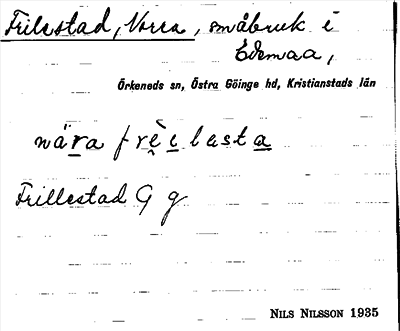 Frilestad, Norra, småbruk i
Edemaa,
Örkeneds sn, Östra Göinge hd, Kristianstads län
nära frèilasta
Frillestad G g
NILS NILSSON 1935